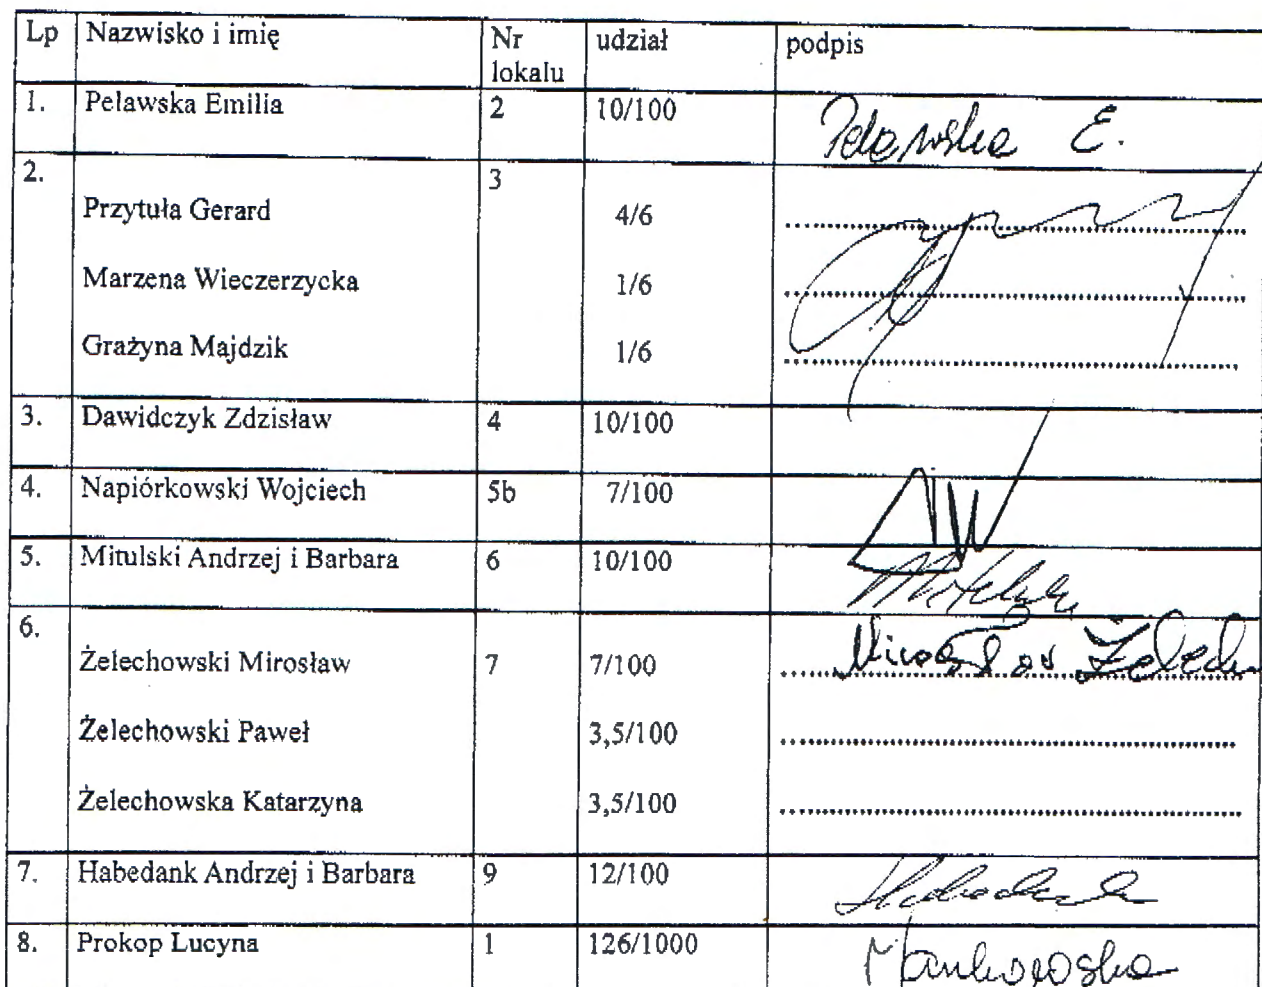 Lp Nazwisko i imię Nr lokalu udział podpis
1. Peławska Emilia 2 10/100 Peławska E.
2. 3
Przytuła Gerard 4/6
Marzena Wieczerzycka 1/6
Grażyna Majdzik 1/6
3. Dawidczyk Zdzisław 4 10/100
4. Napiórkowski Wojciech 5b 7/100
5. Mitulski Andrzej i Barbara 6 10/100
6.
Żelechowski Mirosław 7 7/100 Mirosław
Żelechowski Paweł 3,5/100
Żelechowska Katarzyna 3,5/100
7. Habedank Andrzej i Barbara 9 12/100 Habedank
8. Prokop Lucyna 1 126/1000